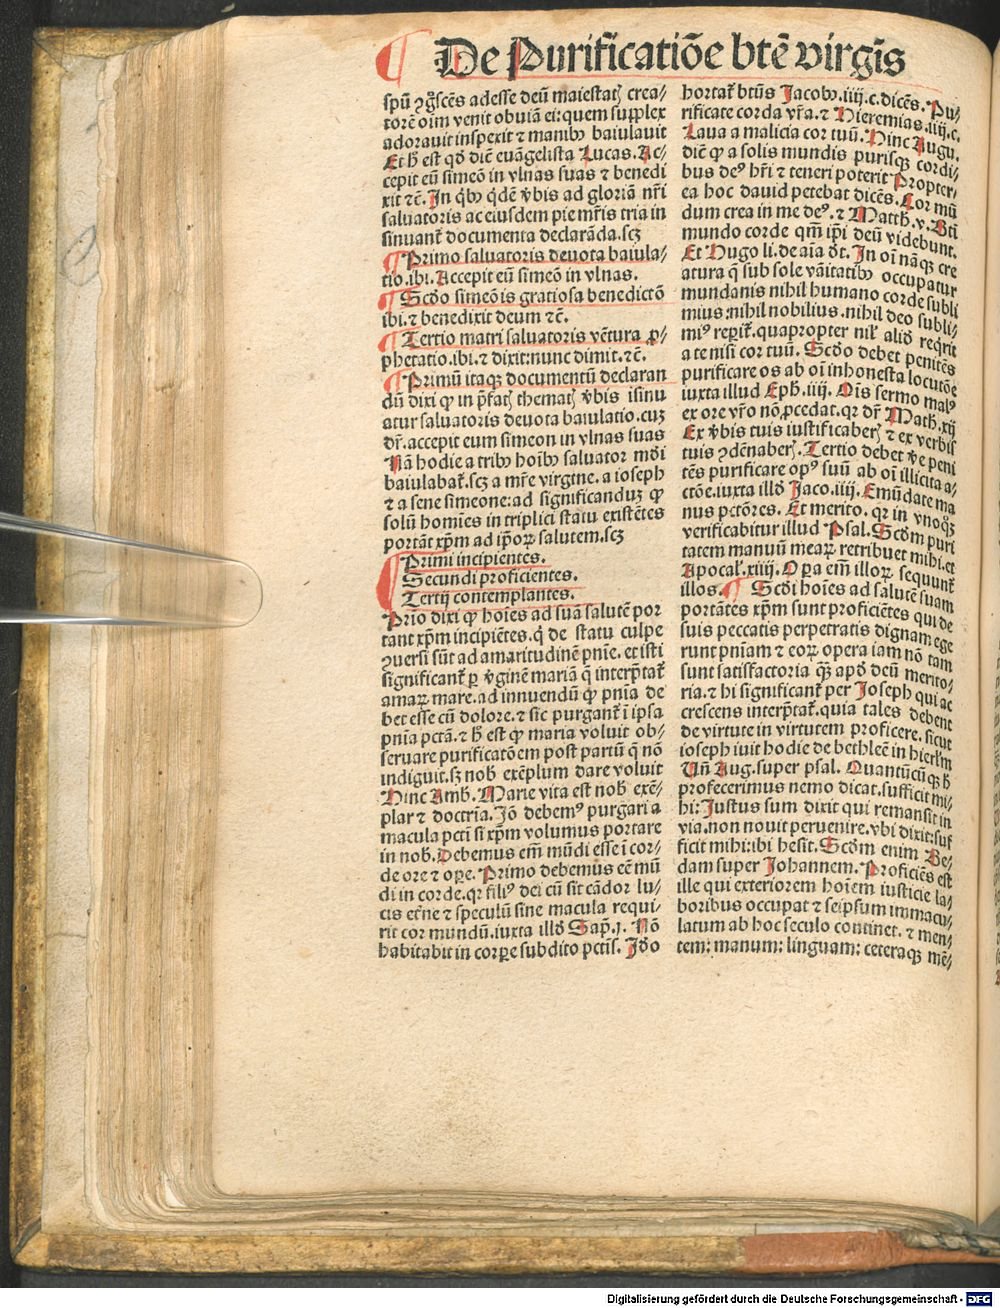 De Purificatiōe btē virgīs
spū ꝯgͦscēs adesse deū maiestatꝫ crea⸗
torē oīm venit obuiā ei: quem supplex
adorauit inspexit ⁊ manibꝰ baiulauit
Et hͦ est qḋ diē euāgelista Lucas. Ac⸗
cepit eū simeō in vlnas suas ⁊ benedi
xit ⁊ē. In qͥbꝰ qͥdē v̄bis ad gloriā nr̄i
saluatoris ac eiusdem pie mr̄is tria in
sinuant̄ documenta declarāda. scꝫ
¶ Primo saluatoris deuota baiula⸗
tio. ibi. Accepit eū simeō in vlnas.
¶ Scḋo simeōis gratiosa benedictō
ibi. ⁊ benedixit deum ⁊ē.
¶ Tertio matri saluatoris vētura ꝓ⸗
phetatio. ibi. ⁊ dixit: nunc dimit. ⁊ē.
¶ Primū itaqꝫ documentū declaran
dū dixi ꝙ in p̄fatꝫ thematꝫ v̄bis isinu
atur saluatoris deuota baiulatio. cuꝫ
dr̄. accepit eum simeon in vlnas suas
Nā hodie a tribꝰ hoībꝰ saluator mūdi
baiulabat̄. scꝫ a mr̄e virgine. a ioseph
⁊ a sene simeone: ad significanduꝫ ꝙ
solū homīes in triplici statu existētes
portāt xp̄m ad ip̄oꝝ salutem. scꝫ
¶ Primi incipientes.
Secundi proficientes.
Tertij contemplantes.
Prīo dixi ꝙ hoīes ad suā salutē por
tant xp̄m incipiētes. qͥ de statu culpe
ꝯuersi sūt ad amaritudinē pnīe. et isti
significant̄ ꝑ v̄ginē mariā q̄ interp̄tat̄
amaꝝ mare. ad innuendū ꝙ pnīa de
bet esse cū dolore. ⁊ sic purgant̄ ī ipsa
pnīa pctā. ⁊ hͦ est ꝙ maria voluit ob⸗
seruare purificatōem post partū q̄ nō
indiguit. sꝫ nob̄ exēplum dare voluit
Hinc Amb. Marie vita est nob̄ exē⸗
plar ⁊ doctrīa. Iō debemꝰ purgari a
macula pctī si xp̄m volumus portare
in nob̄. Debemus em̄ mūdi esse ī cor⸗
de ore ⁊ oꝑe. Primo debemus eē mū
di in corde. qꝛ filiꝰ dei cū sit cādor lu⸗
cis et̄ne ⁊ speculū sine macula requi⸗
rit cor mundū. iuxta illḋ Sap. j. Nō
habitabit in corꝑe subdito pctīs. Iḋo
hortat̄ btūs Jacobꝰ. iiij. c. dicēs. Pu⸗
rificate corda vr̄a. ⁊ Hieremias. iiij. c.
Laua a malicia cor tuū. Hinc Augu.
diē ꝙ a solis mundis purisqꝫ cordi⸗
bus deꝰ hr̄i ⁊ teneri poterit Propter⸗
ea hoc dauid petebat dicēs. Cor mū
dum crea in me deꝰ. ⁊ Matth. v. Btī
mundo corde qm̄ ip̄i deū videbunt.
Et Hugo li. de aīa dt̄. In oī nāqꝫ cre
atura q̄ sub sole vāitatibꝰ occupatur
mundanis nihil humano corde subli
mius: nihil nobilius. nihil deo subli⸗
miꝰ reꝑit̄. quapropter nil̄ aliḋ reqͥrit
a te nisi cor tuū. Scḋo debet penitēs
purificare os ab oī inhonesta locutōe
iuxta illud Eph. iiij. Oīs sermo malꝰ
ex ore vr̄o nō ꝓcedat. qꝛ dr̄ Math. xij
Ex v̄bis tuis iustificaberꝭ ⁊ ex verbis
tuis ꝯdēnaberꝭ. Tertio debet v̄e peni
tēs purificare opꝰ suū ab oī illicita a⸗
ctōe. iuxta illḋ Jaco. iiij. Emūdate ma
nus pctōres. Et merito. qꝛ in vnoqͦqꝫ
verificabitur illud Psal. Scḋm puri
tatem manuū meaꝝ retribuet mihi. et
Apocal̄. xiiij. Oꝑa em̄ illoꝝ sequunt̄
illos. ¶ Scḋi hoīes ad salutē suam
portātes xp̄m sunt proficiētes qui de
suis peccatis perpetratis dignam ege
runt pnīam ⁊ eoꝝ opera iam nō tam
sunt satisfactoria qͣꝫ apḋ deū merito⸗
ria. ⁊ hi significant̄ per Joseph qui ac
crescens interp̄tat̄. quia tales debent
de virtute in virtutem proficere. sicut
ioseph iuit hodie de bethleē in hierl̄m
Vn̄ Aug. super psal. Quantūcūqꝫ hͨ
profecerimus nemo dicat. sufficit mi⸗
hi: Justus sum dixit qui remansit in
via. non nouit peruenire. vbi dixit: suf
ficit mihi: ibi hesit. Scḋm enim Be⸗
dam super Johannem. Proficiēs est
ille qui exteriorem hoīem iusticie la⸗
boribus occupat ⁊ seipsum immacu⸗
latum ab hoc seculo continet. ⁊ men⸗
tem: manum: linguam: ceteraqꝫ mē⸗
Digitalisierung gefördert durch die Deutsche Forschungsgemeinschaft - DFG